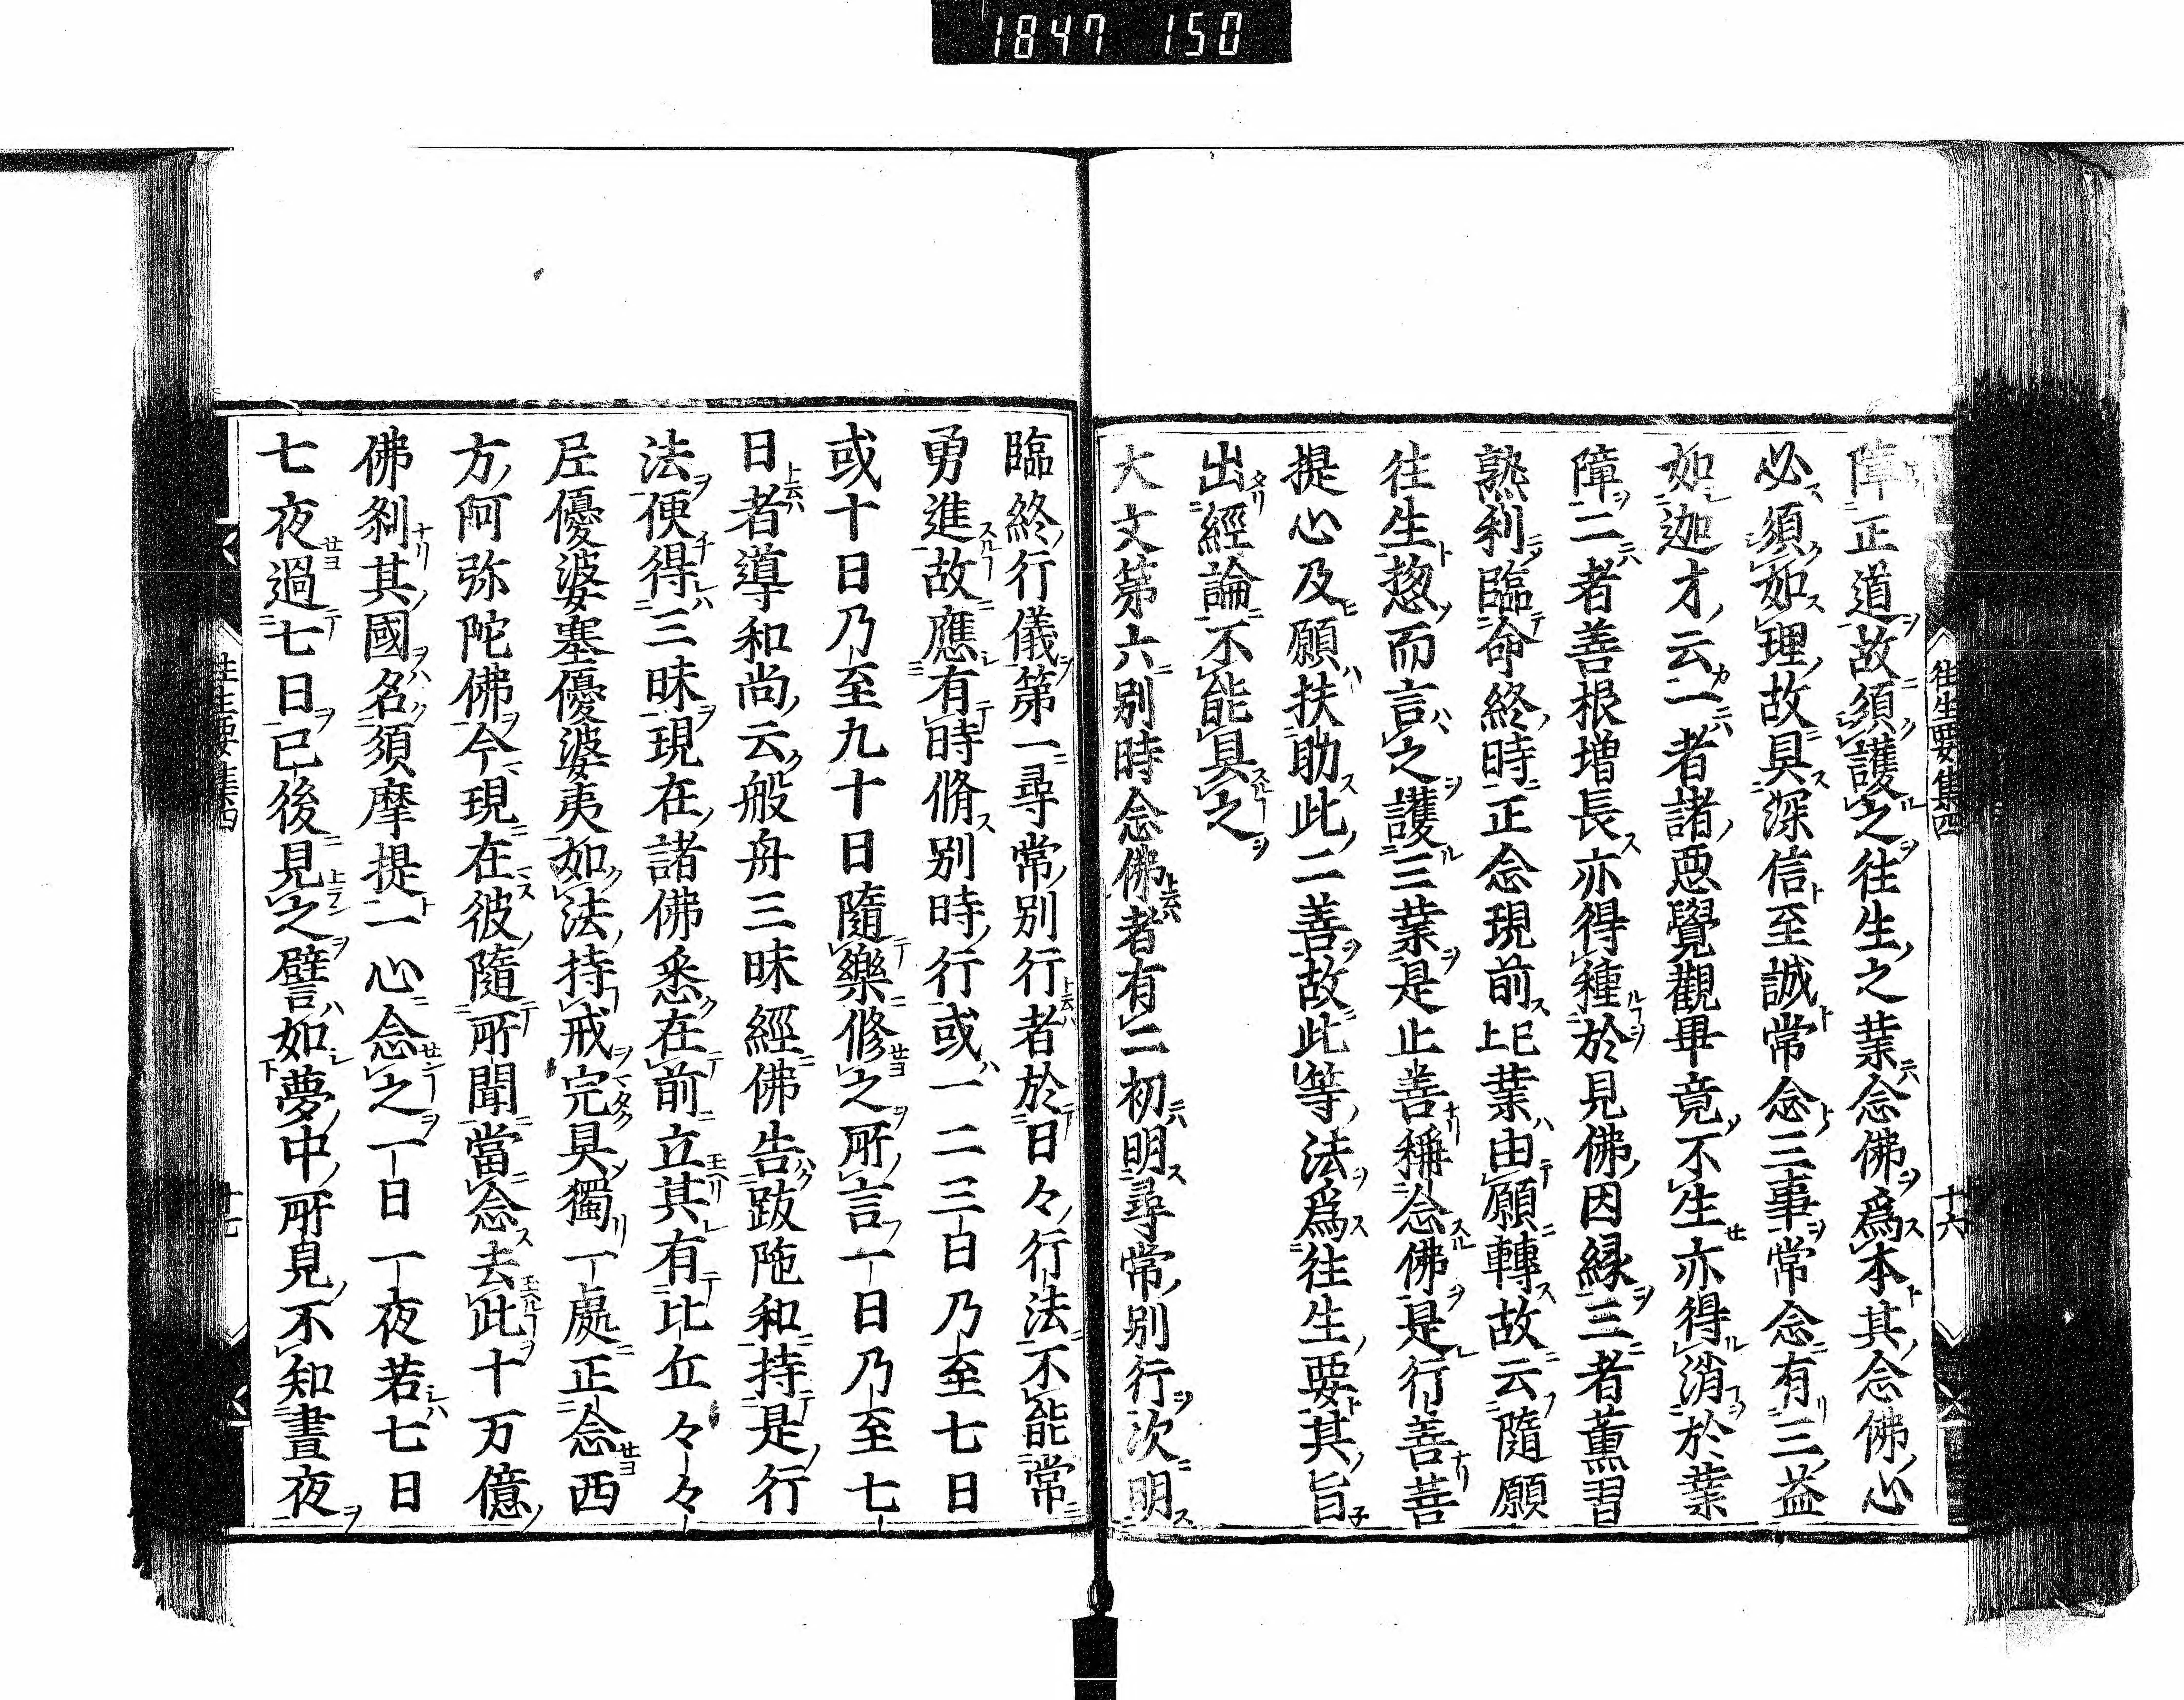 1847 150
往生要集四
十六
障正道故須護之往生之業念佛爲本其念佛心
必須如理故具深信至誠常念三事常念有三益
如迦才云一者諸惡覺觀畢竟不生亦得消於業
障二者善根増長亦得種於見佛因縁三者薫習
熟利臨命終時正念現前上巳業由願轉故云隨願
往生惣而言之護三業是止善稱念佛是行善菩
提心及願扶助此二善故此等法爲往生要其旨
出經論不能具之
大文第六別時念佛者有二初明尋常別行次明
臨終行儀第一尋常別行者於日々行法不能常
勇進故應有時脩別時行或一二三日乃至七日
或十日乃至九十日隨樂修之所言一日乃至七
日者導和尚云般舟三昧經佛告跋陁和持是行
法便得三昧現在諸佛悉在前立其有比丘々々
尼優婆塞優婆夷如法持戒完具獨一處正念西
方阿弥陀佛今現在彼隨所聞當念去此十万億
佛刹其國名須摩提一心念之一日一夜若七日
七夜過七日已後見之譬如夢中所見不知晝夜
往生要集四
十七